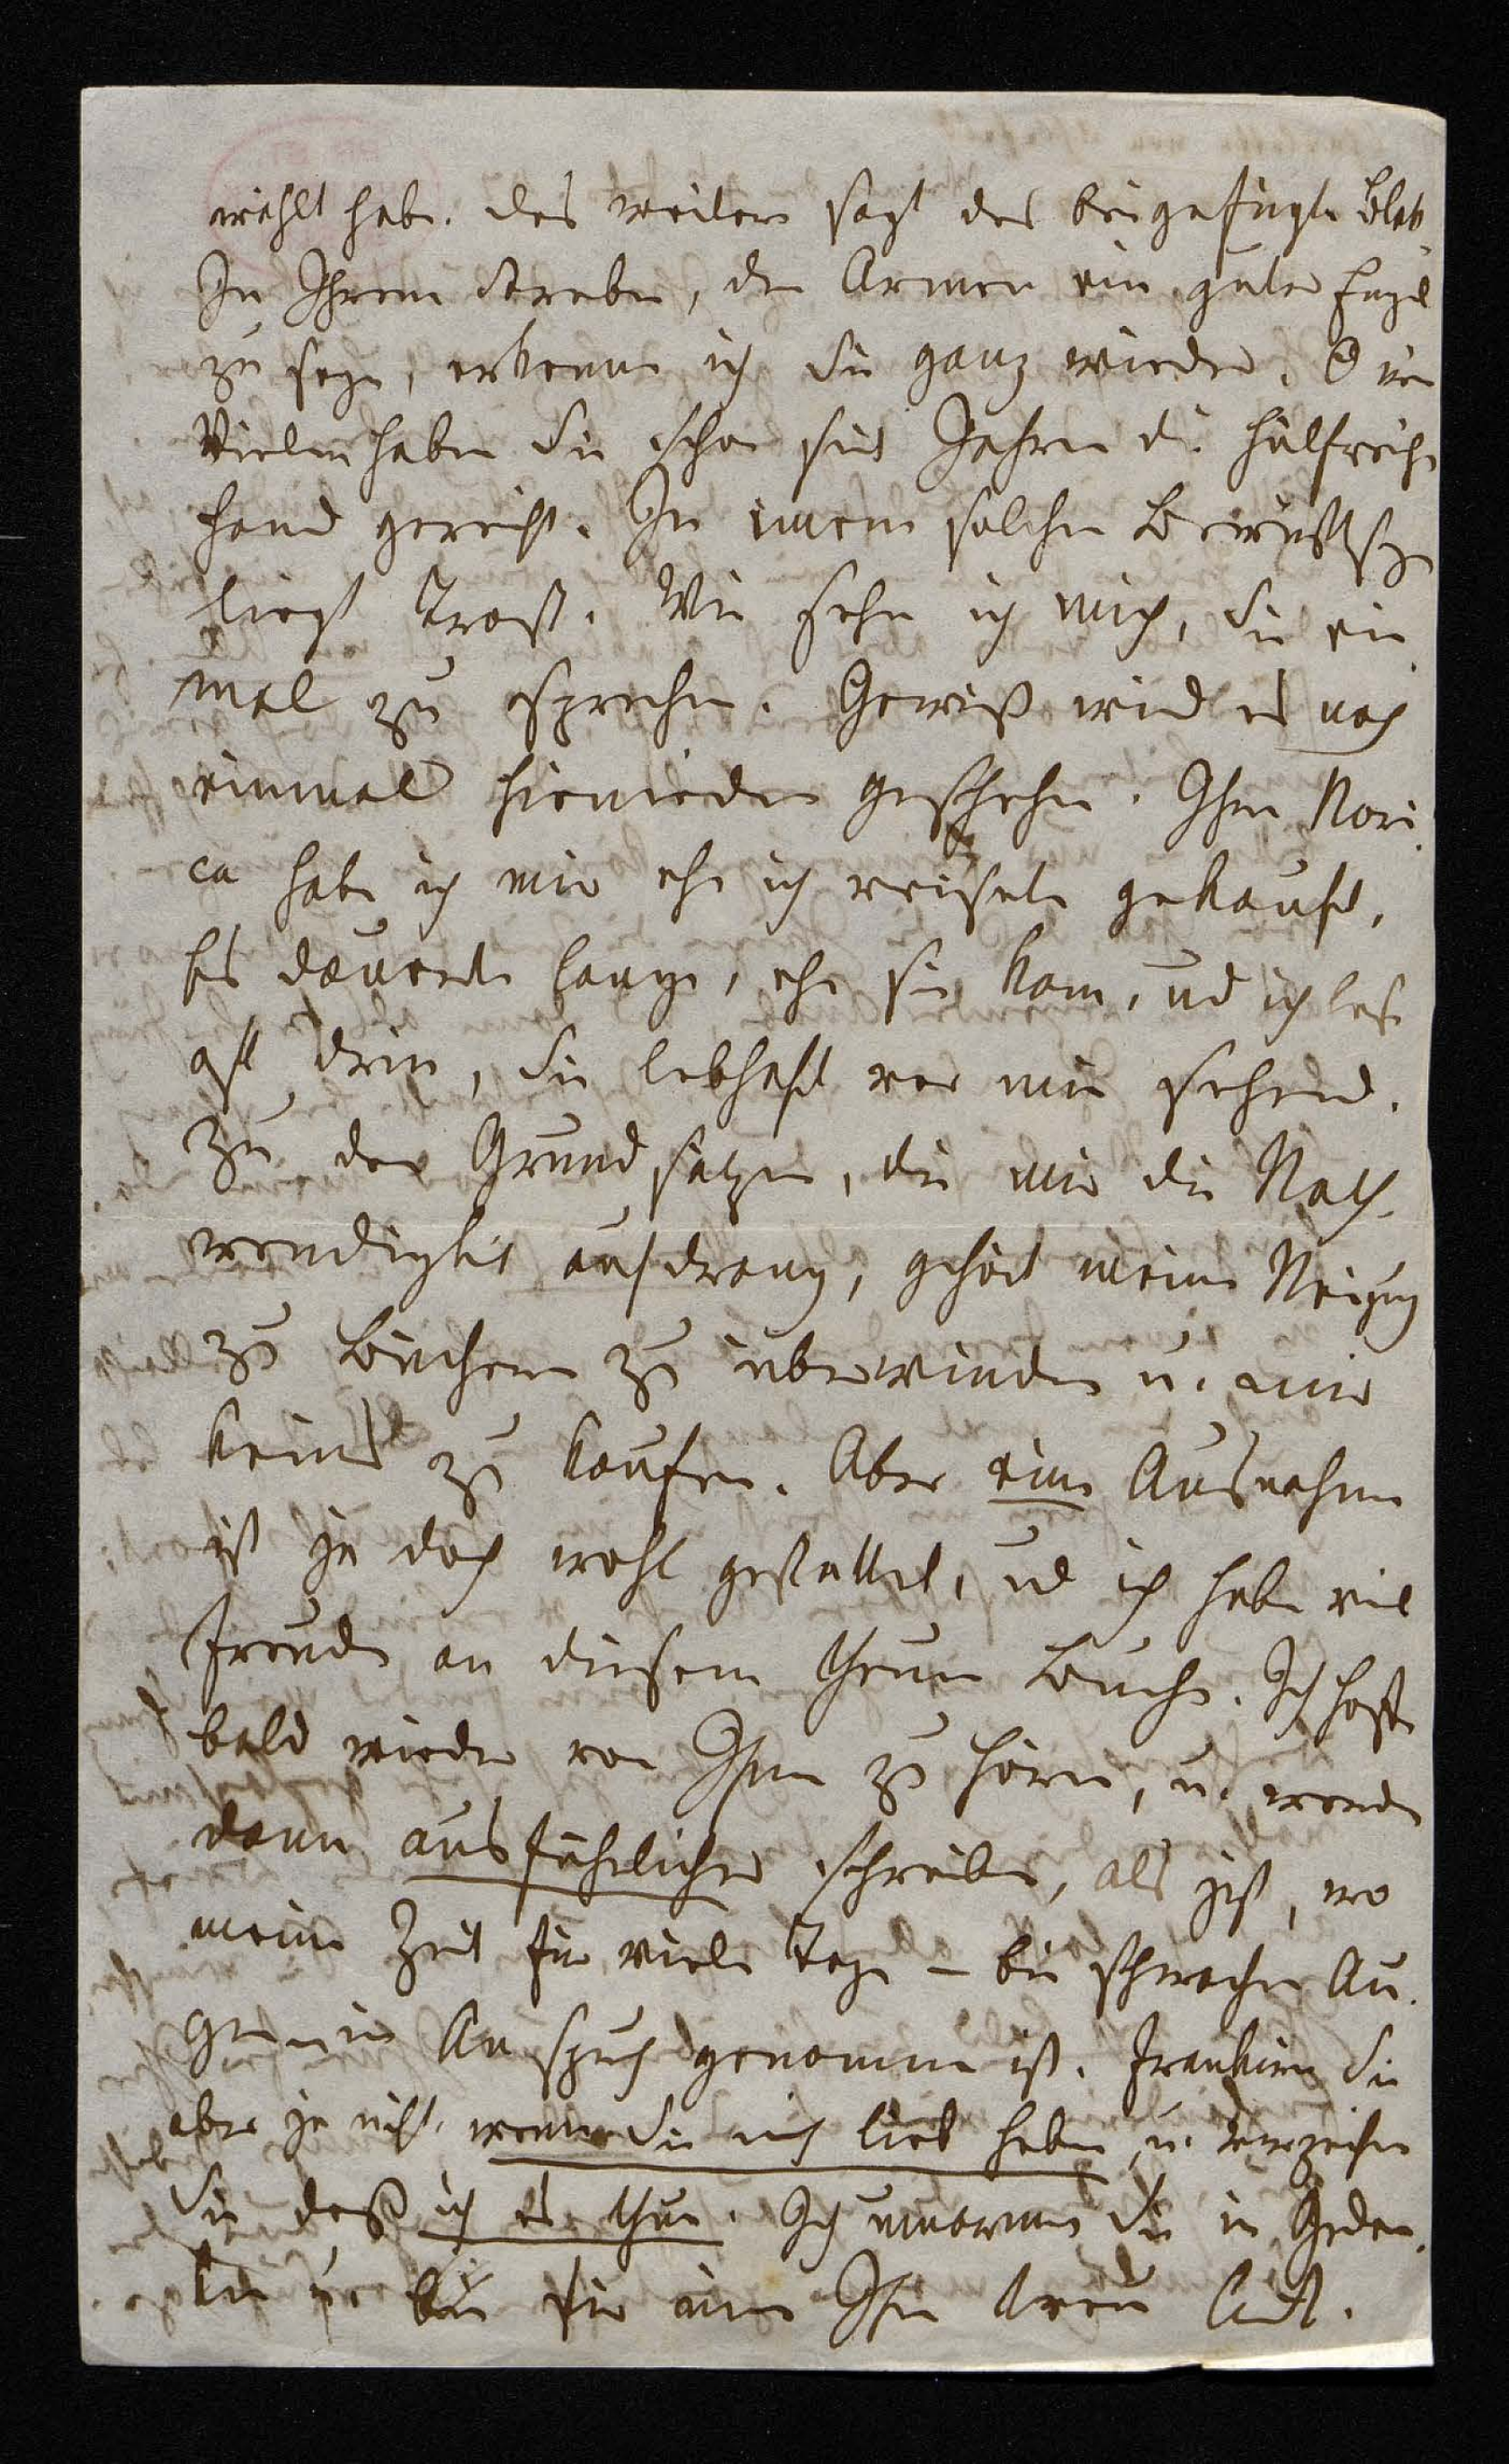 wählt habe. Das weitere sagt das beigefügte Blatt
In Ihrem Streben, den Armen ein guter Engel
zu seyn, erkenne ich Sie ganz wieder. O wie
Vielen haben Sie schon seit Jahren die hülfreiche
Hand gereicht. In einem solchen Bewußtseyn
liegt Trost. Wie sehne ich mich, Sie ein
mal zu sprechen. Gewiß wird es noch
einmal hienieden geschehen. Ihre Nori
ca habe ich mir ehe ich reisete gekauft.
Es dauerte lange, ehe sie kam, und ich lese
oft drin, Sie lebhaft vor mir sehend.
Zu den Grundsätzen, die mir die Noth-
wendigkeit aufdrang, gehört meine Neigung
zu Büchern zu überwinden u. mir
keins zu kaufen. Aber eine Ausnahme
ist ja doch wohl gestattet, und ich habe viel
Freude an diesem theuren Buche. Ich hoffe
bald wieder von Ihnen zu hören, u. werde
dann ausführlicher schreiben, als jetzt, wo
meine Zeit für viele Tage – bei schwachen Au-
gen in Anspruch genommen ist. Frankiren Sie
aber ja nicht, wenn Sie mich lieb haben u. verzeihen
Sie daß ich es thue. Ich umarme Sie in Gedan-
ken u. bin für immer Ihre treue